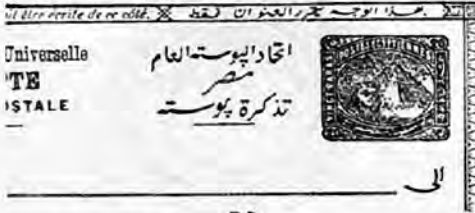 être écrite de ce côté. هذا الوجه يحرر العنوان فقط
Universelle اتحاد البوسته العام
TE مصر
OSTALE تذكرة بوسته
الى